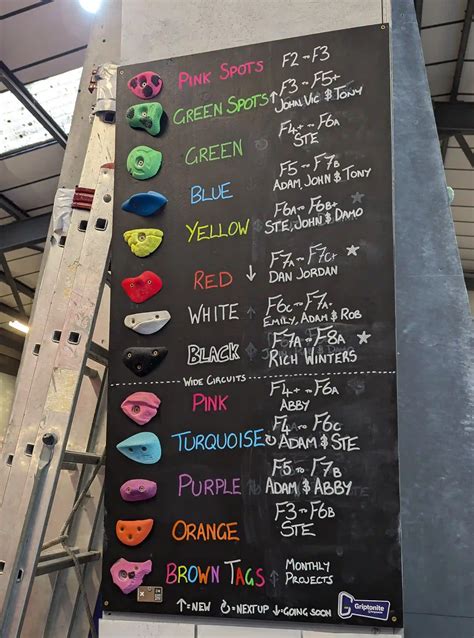 PINK SPOTS F2 - F3
GREEN SPOTS ↑ F3 - F5+
JOHN VIC & TONY
GREEN F4+ - F6A
STE
BLUE F5 - F7B
ADAM, JOHN & TONY
YELLOW F6A - F6B+
STE, JOHN & DAMO
RED ↓ F7A - F7C+ ★
DAN JORDAN
WHITE F6C - F7A
EMILY, ADAM & ROB
BLACK F7A - F8A ★
RICH WINTERS
WIDE CIRCUITS
PINK F4+ - F6A
ABBY
TURQUOISE ↻ F4 - F6C
ADAM & STE
PURPLE F5 - F7B
ADAM & ABBY
ORANGE F3 - F6B
STE
BROWN TAGS MONTHLY
PROJECTS
↑=NEW ↻=NEXT UP ↓=GOING SOON
Griptonite